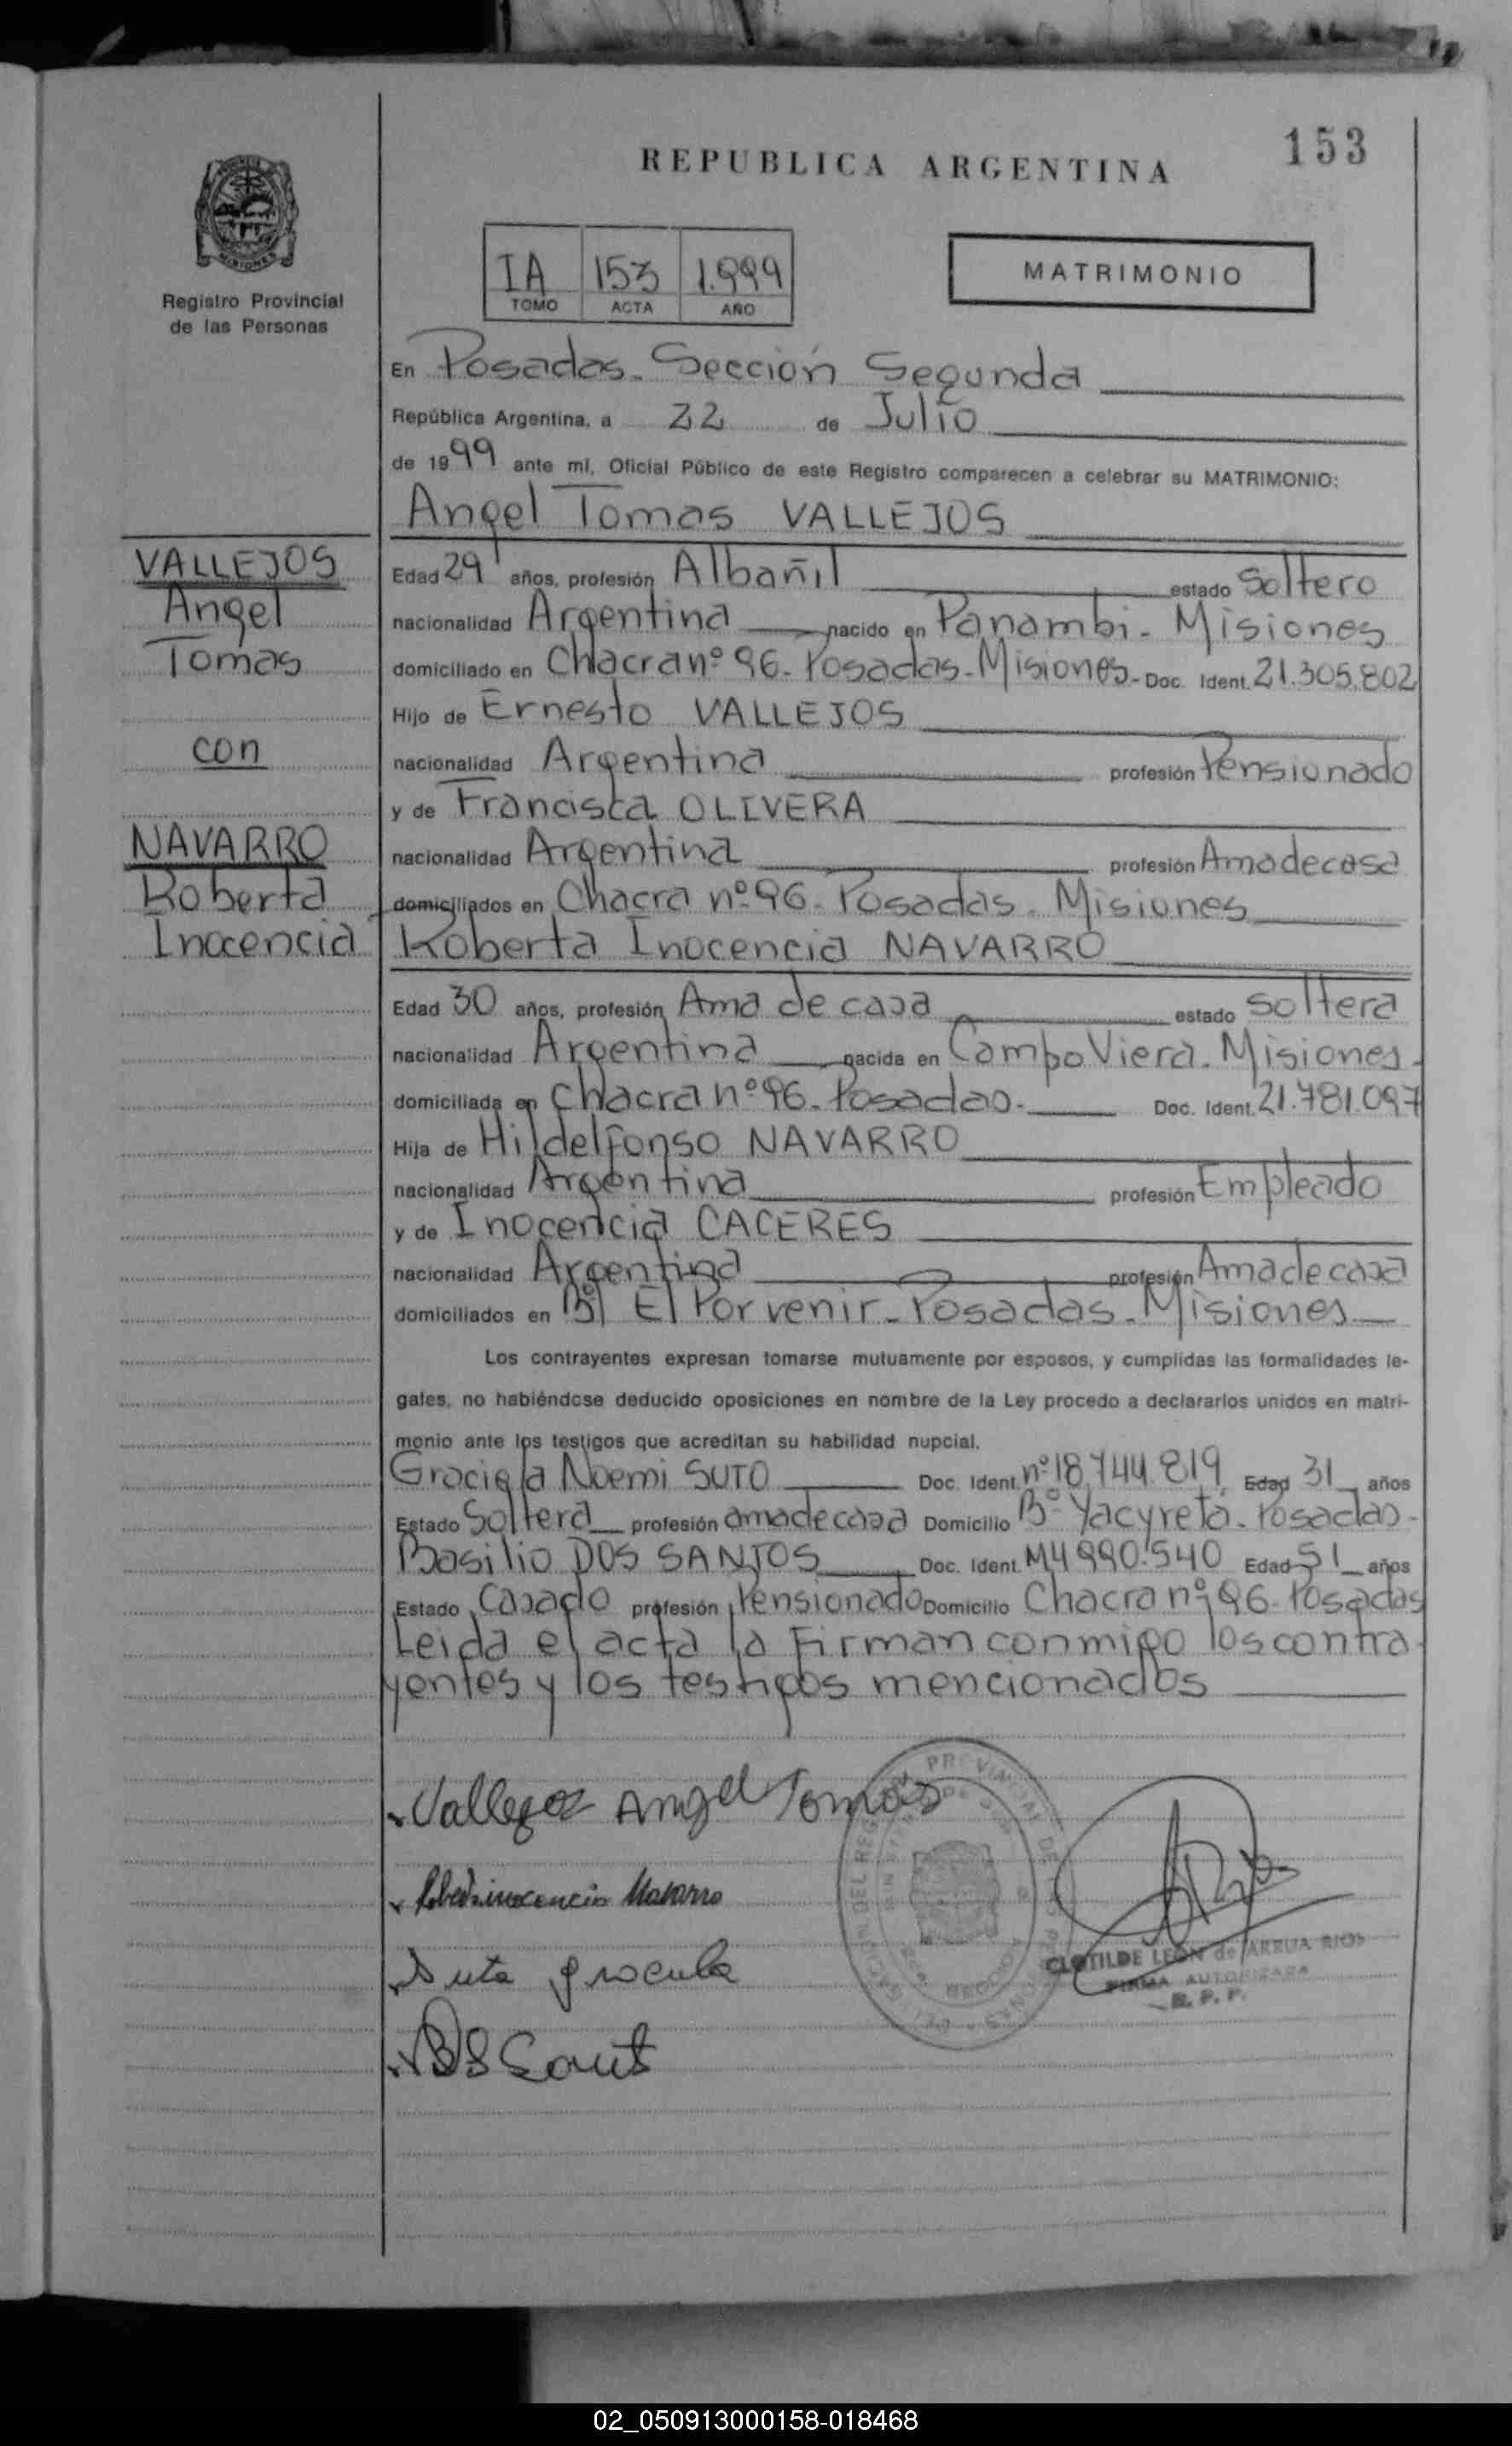 153
REPUBLICA ARGENTINA
MISIONES
Registro Provincial
de las Personas
IA 153 1.999
TOMO ACTA AÑO
MATRIMONIO
En Posadas - Sección Segunda
República Argentina, a 22 de Julio
de 1999 ante mí, Oficial Público de este Registro comparecen a celebrar su MATRIMONIO:
Angel Tomas VALLEJOS
VALLEJOS
Angel
Tomas
con
NAVARRO
Roberta
Inocencia
Edad 29 años, profesión Albañil estado Soltero
nacionalidad Argentina nacido en Panambi - Misiones
domiciliado en Chacra nº 96 - Posadas - Misiones - Doc. Ident. 21.305.802
Hijo de Ernesto VALLEJOS
nacionalidad Argentina profesión Pensionado
y de Francisca OLIVERA
nacionalidad Argentina profesión Amadecasa
domiciliados en Chacra nº 96 - Posadas - Misiones
Roberta Inocencia NAVARRO
Edad 30 años, profesión Ama de casa estado soltera
nacionalidad Argentina nacida en Campo Viera - Misiones -
domiciliada en Chacra nº 96 - Posadas - Doc. Ident. 21.781.097
Hija de Hildelfonso NAVARRO
nacionalidad Argentina profesión Empleado
y de Inocencia CACERES
nacionalidad Argentina profesión Amadecasa
domiciliados en Bº El Porvenir - Posadas - Misiones
Los contrayentes expresan tomarse mutuamente por esposos, y cumplidas las formalidades le-
gales, no habiéndose deducido oposiciones en nombre de la Ley procedo a declararlos unidos en matri-
monio ante los testigos que acreditan su habilidad nupcial.
Graciela Noemi SUTO Doc. Ident. nº 18.744.819 Edad 31 años
Estado Soltera profesión amadecasa Domicilio Bº Yacyreta - Posadas -
Basilio DOS SANTOS Doc. Ident. M4.990.540 Edad 51 años
Estado Casado profesión Pensionado Domicilio Chacra nº 96 - Posadas
Leida el acta la firman conmigo los contra-
yentes y los testigos mencionados
Vallejos Angel Tomas
Roberta inocencia Navarro
Suto
CLOTILDE LEON de ARRUA RIOS
FIRMA AUTORIZADA
R. P. P.
02_050913000158-018468